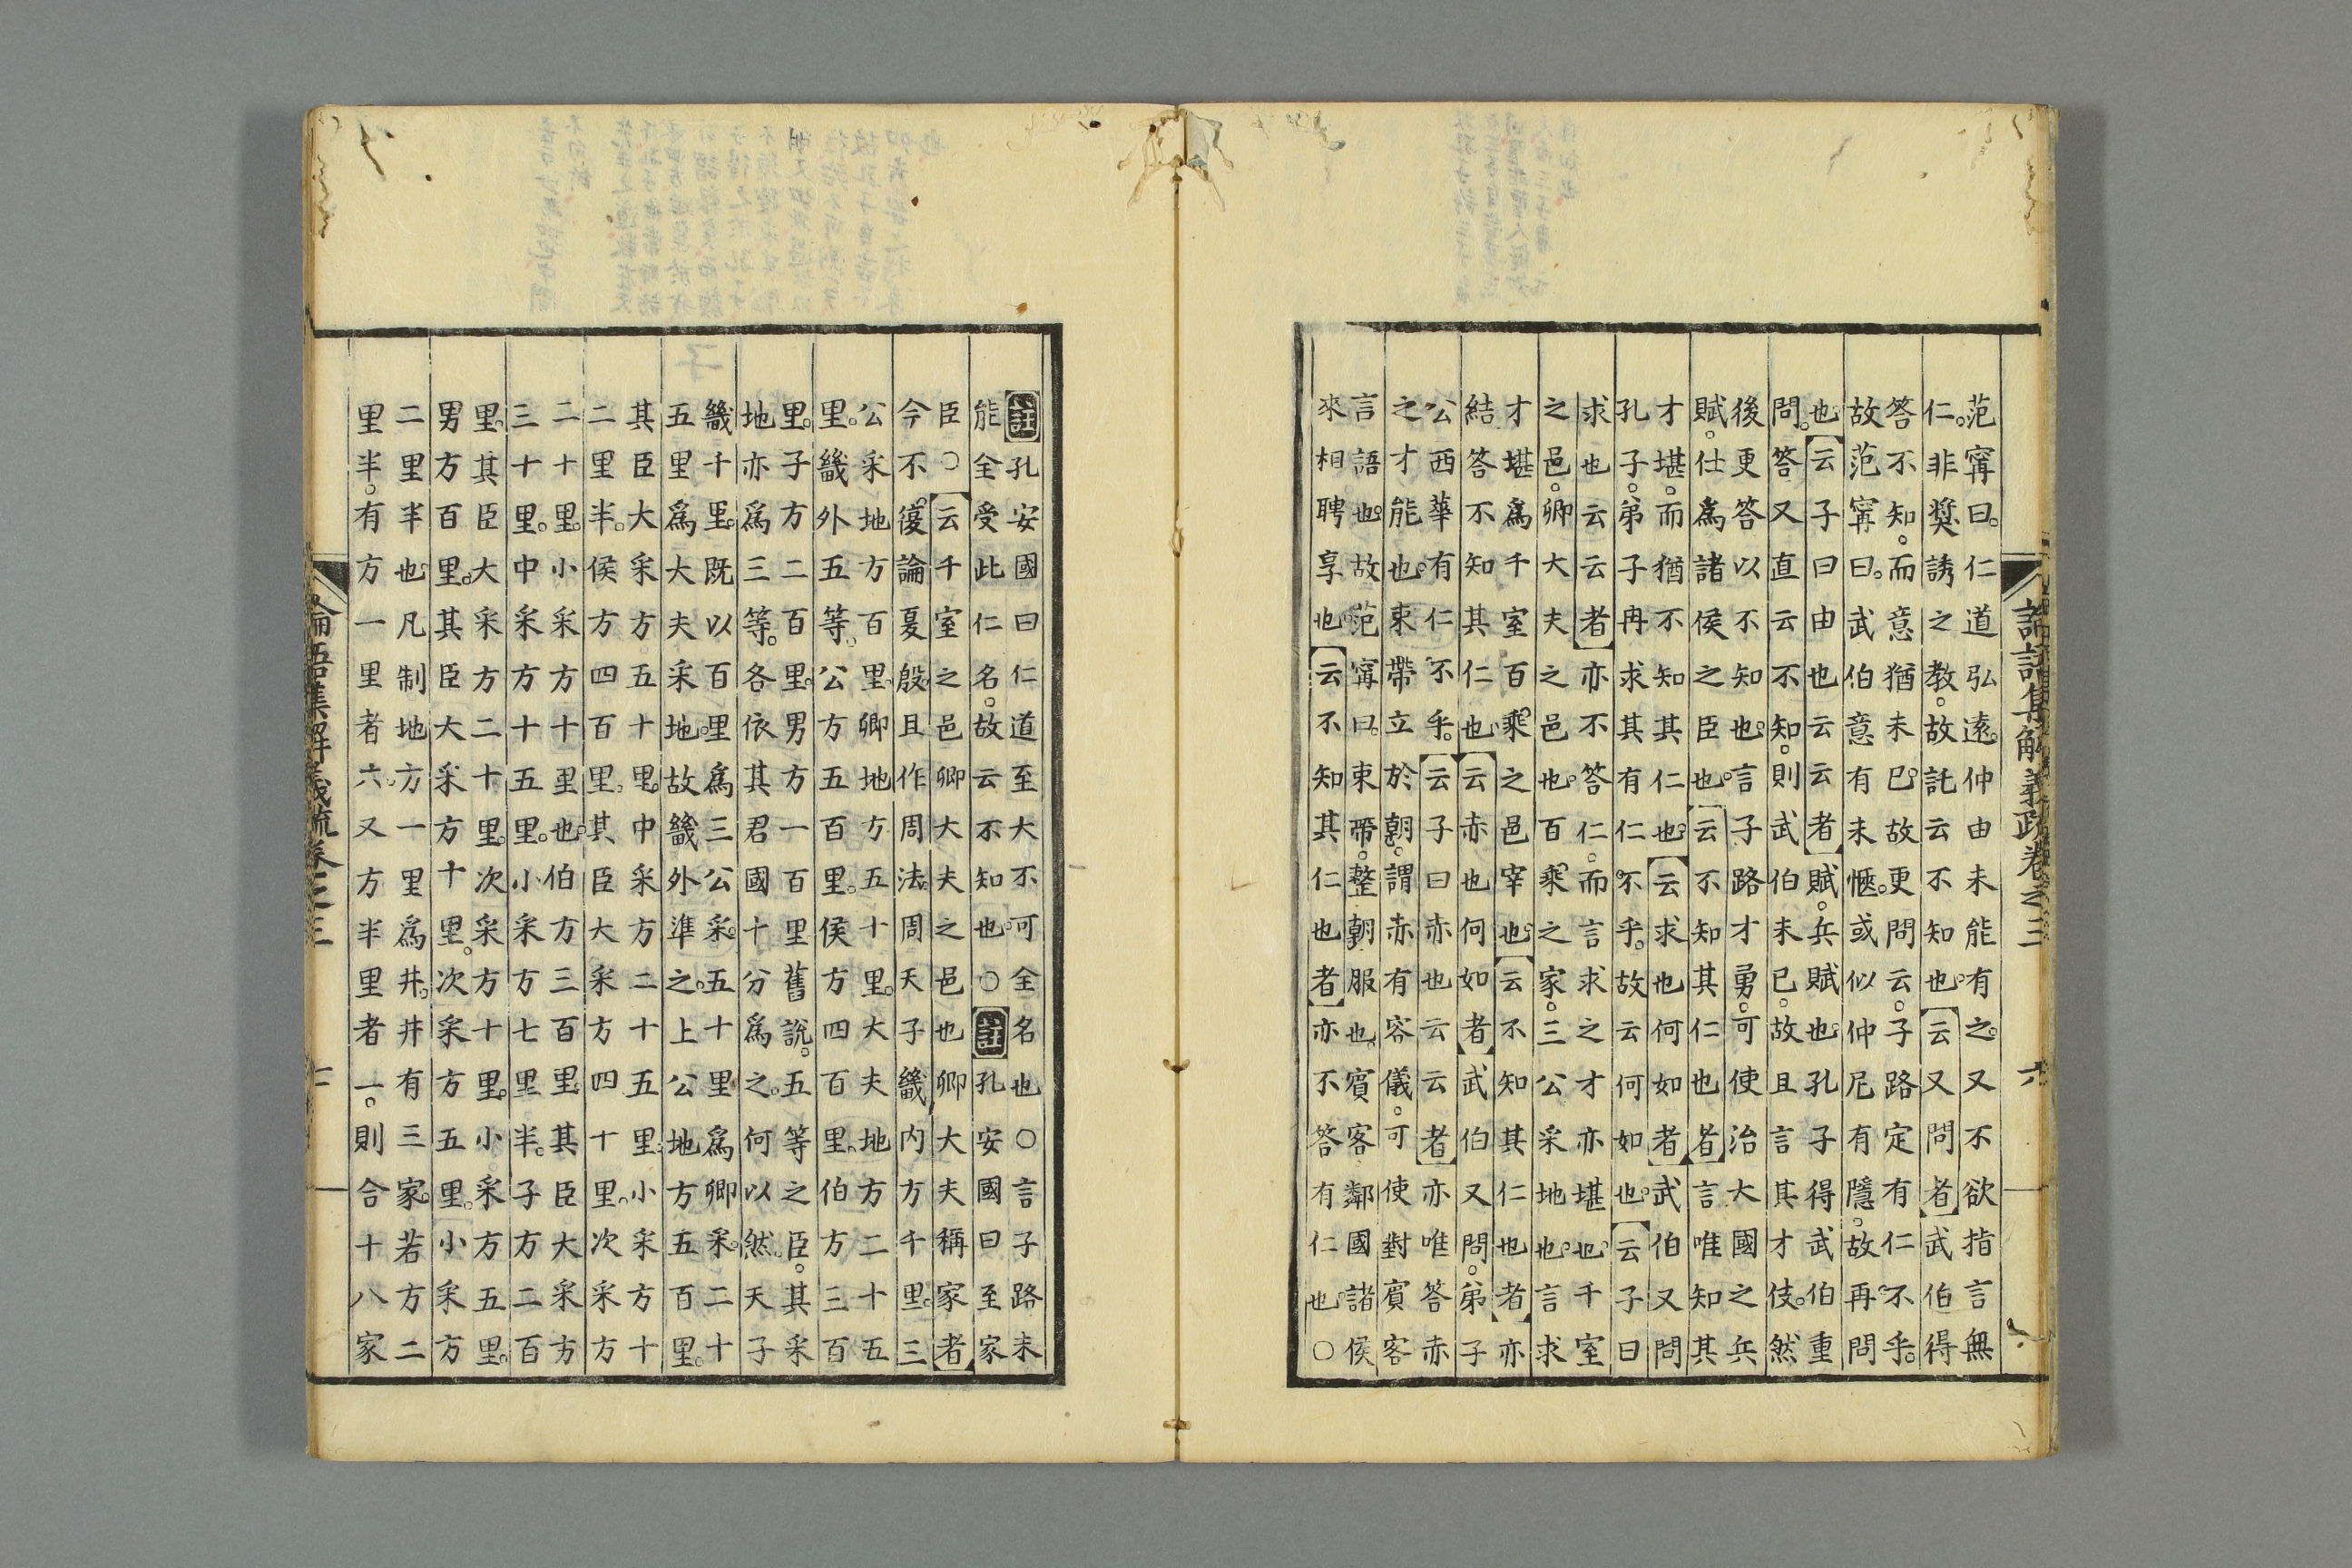 論語集解義疏卷之三
六
范寗曰。仁道弘遠。仲由未能有之。又不欲指言無
仁。非奬誘之教。故託云不知也。【云又問者】武伯得
答不知。而意猶未已。故更問云。子路定有仁不乎。
故范寗曰。武伯意有未愜。或似仲尼有隱。故再問
也。【云子曰由也云云者】賦。兵賦也。孔子得武伯重
問。答又直云不知。則武伯未已。故且言其才伎。然
後更答以不知也。言子路才勇。可使治大國之兵
賦。仕爲諸侯之臣也。【云不知其仁也者】言唯知其
才堪。而猶不知其仁也。【云求也何如者】武伯又問
孔子。弟子冉求其有仁不乎。故云何如也。【云子曰
求也云云者】亦不答仁。而言求之才亦堪也。千室
之邑。卿大夫之邑也。百乘之家。三公采地也。言求
才堪爲千室百乘之邑宰也。【云不知其仁也者】亦
結答不知其仁也。【云赤也何如者】武伯又問。弟子
公西華有仁不乎。【云子曰赤也云云者】亦唯答赤
之才能也。束帶立於朝。謂赤有容儀。可使對賓客
言語也。故范寗曰。束帶。整朝服也。賓客鄰國諸侯
來相聘享也。【云不知其仁也者】亦不答有仁也。○
註孔安國曰仁道至大不可全名也○言子路未
能全受此仁名。故云不知也。○註孔安國曰至家
臣○【云千室之邑卿大夫之邑也卿大夫稱家者】
今不復論夏殷。且作周法。周天子畿内方千里。三
公采地方百里。卿地方五十里。大夫地方二十五
里。畿外五等。公方五百里。侯方四百里。伯方三百
里。子方二百里。男方一百里舊說。五等之臣。其采
地亦爲三等。各依其君國十分爲之。何以然。天子
畿千里。既以百里爲三公采。五十里爲卿采。二十
五里爲大夫采地。故畿外準之。上公地方五百里。
其臣大采方五十里。中采方二十五里。小采方十
二里半。侯方四百里。其臣大采方四十里。次采方
二十里。小采方十里也。伯方三百里。其臣大采方
三十里。中采方十五里。小采方七里半。子方二百
里。其臣大采方二十里。次采方十里。小采方五里。
男方百里。其臣大采方十里。次采方五里。小采方
二里半也。凡制地方一里爲井。井有三家。若方二
里半。有方一里者六。又方半里者一。則合十八家
論語集解義疏卷之三